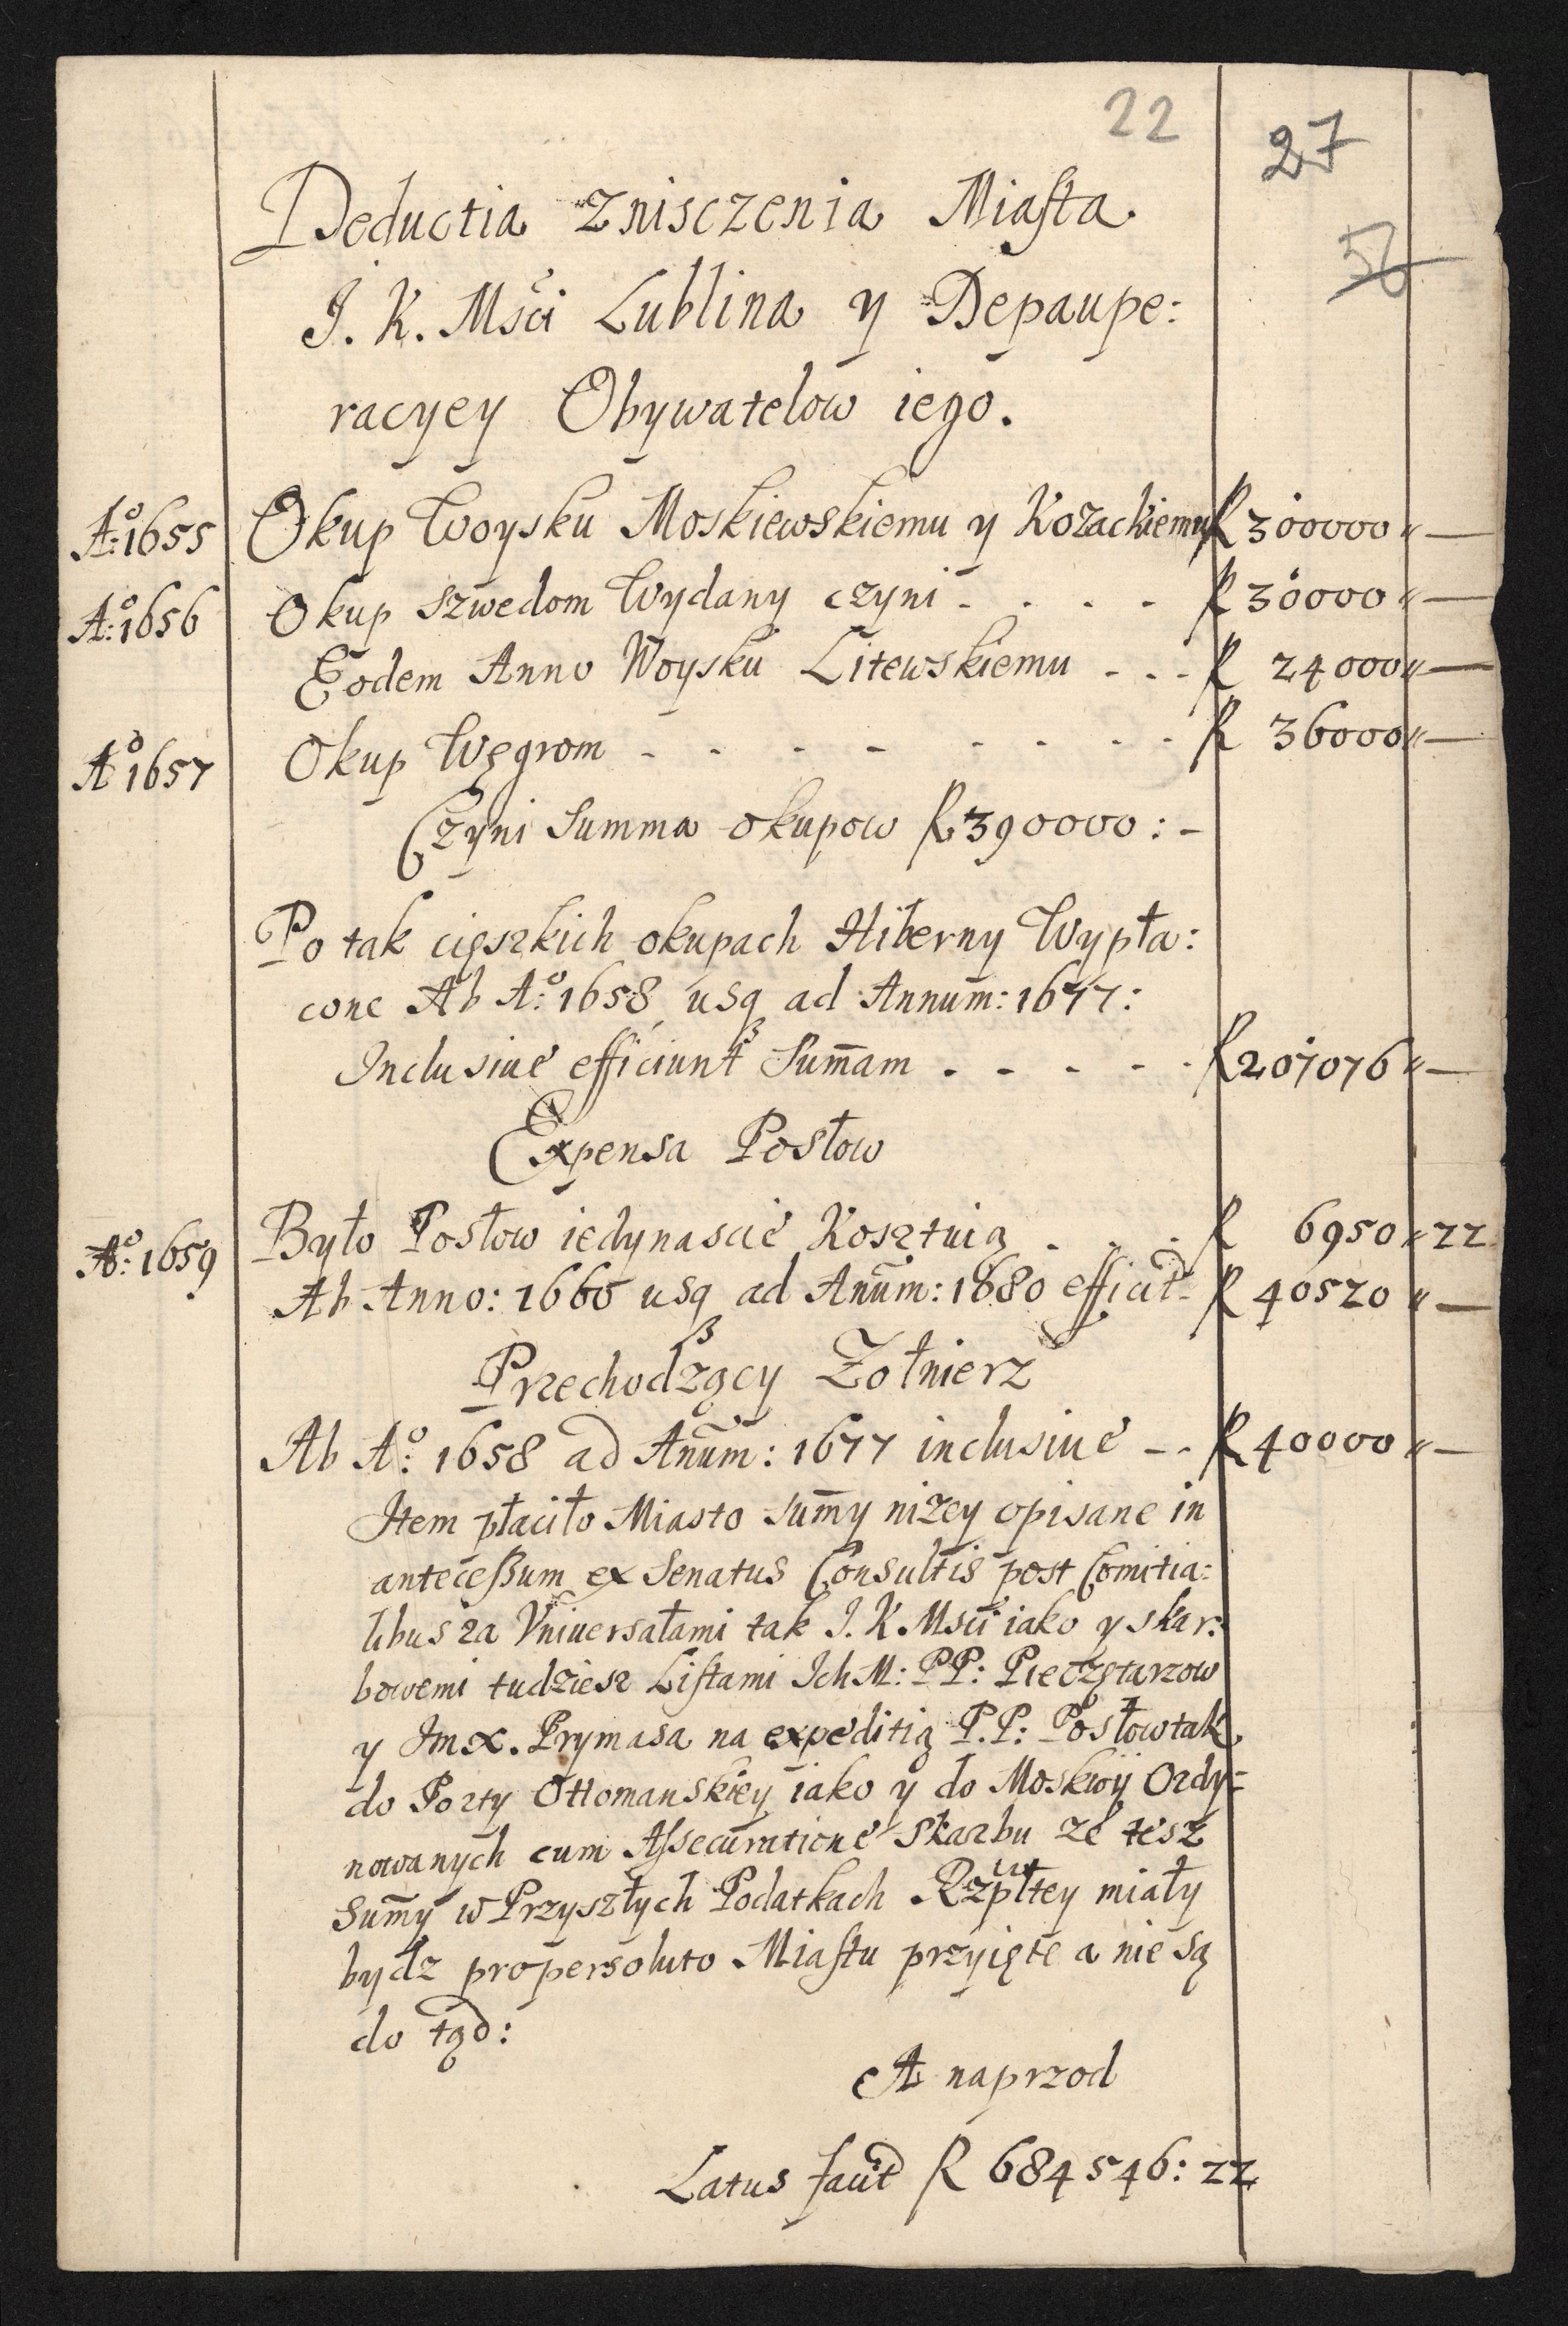 22
27
56
Deductia zniszczenia Miasta
J. K. Mści Lublina y Depaupe:
racyey Obywatelow iego.
Aº: 1655 Okup Woysku Moskiewskiemu y Kozackiemu R 300000 „ —
Aº: 1656 Okup Szwedom Wydany czyni - - - - R 30000 „ —
Eodem Anno Woysku Litewskiemu - - - R 24000 „ —
Aº 1657 Okup Węgrom - - - - - - - - R 36000 „ —
Czyni Summa okupow R 390000 : -
Po tak cięszkich okupach Hiberny Wypła:
cone Ab Aº: 1658 usq ad Annum: 1677:
Inclusive efficiunt Sum̄am - - - - - R 207076 „ —
Expensa Posłow
Aº: 1659 Było Posłow iedynascie Kosztuią - - - R 6950 „ 22
Ab Anno: 1660 usq ad Anūm: 1680 efficiūt - R 40520 „ —
Przechodzący Żołnierz
Ab Aº: 1658 ad Anūm: 1677 inclusive - - R 40000 „ —
Item płaciło Miasto sum̄y niżey opisane in
antecessum ex Senatus Consultis post Comitia:
libus za Vniuersałami tak J. K. Mści iako y skar:
bowemi tudziesz Listami Ich M: PP: Pieczętarzow
y Jmx. Prymasa na expeditią P.P: Posłow tak
do Porty Ottomanskiey iako y do Moskwy Ordy=
nowanych cum Assecuratione Skarbu że tesz
Sum̄y w Przyszłych Podatkach Rzpltey miały
bydz pro persoluto Miastu przyięte a nie są
do tąd:
A naprzod
Latus facit R 684546: 22